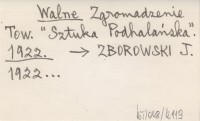 Walne Zgromadzenie
Tow. "Sztuka Podhalańska".
1922. → ZBOROWSKI J.
1922...